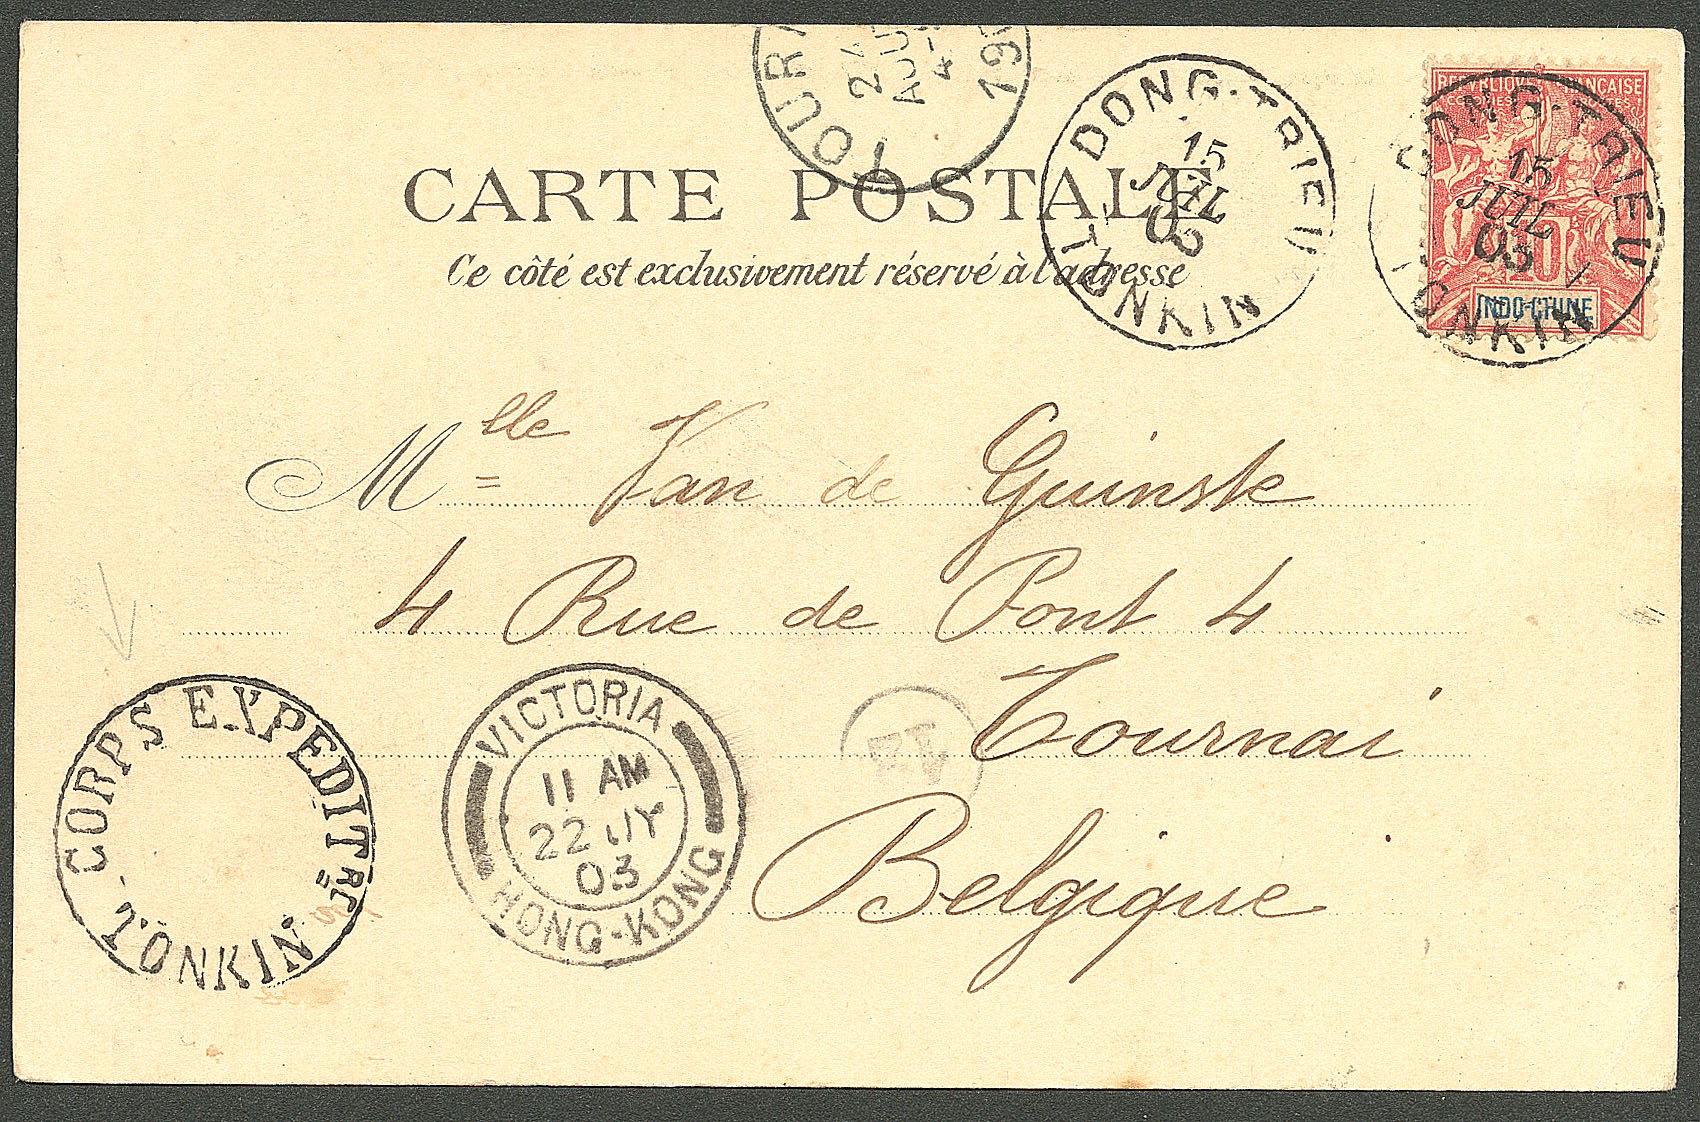 CARTE POSTALE
Ce côté est exclusivement réservé à l'adresse
TOURN
24
AOUT
4-
190
DONG-TRIEU
15
JUIL
03
TONKIN
REPUBLIQUE FRANÇAISE
COLONIES
10
INDO-CHINE
DONG-TRIEU
15
JUIL
03
TONKIN
Mlle Van de Guinste
4 Rue de Pont 4
Tournai
Belgique
CORPS EXPEDITRE
TONKIN
VICTORIA
11 AM
22 JY
03
HONG-KONG